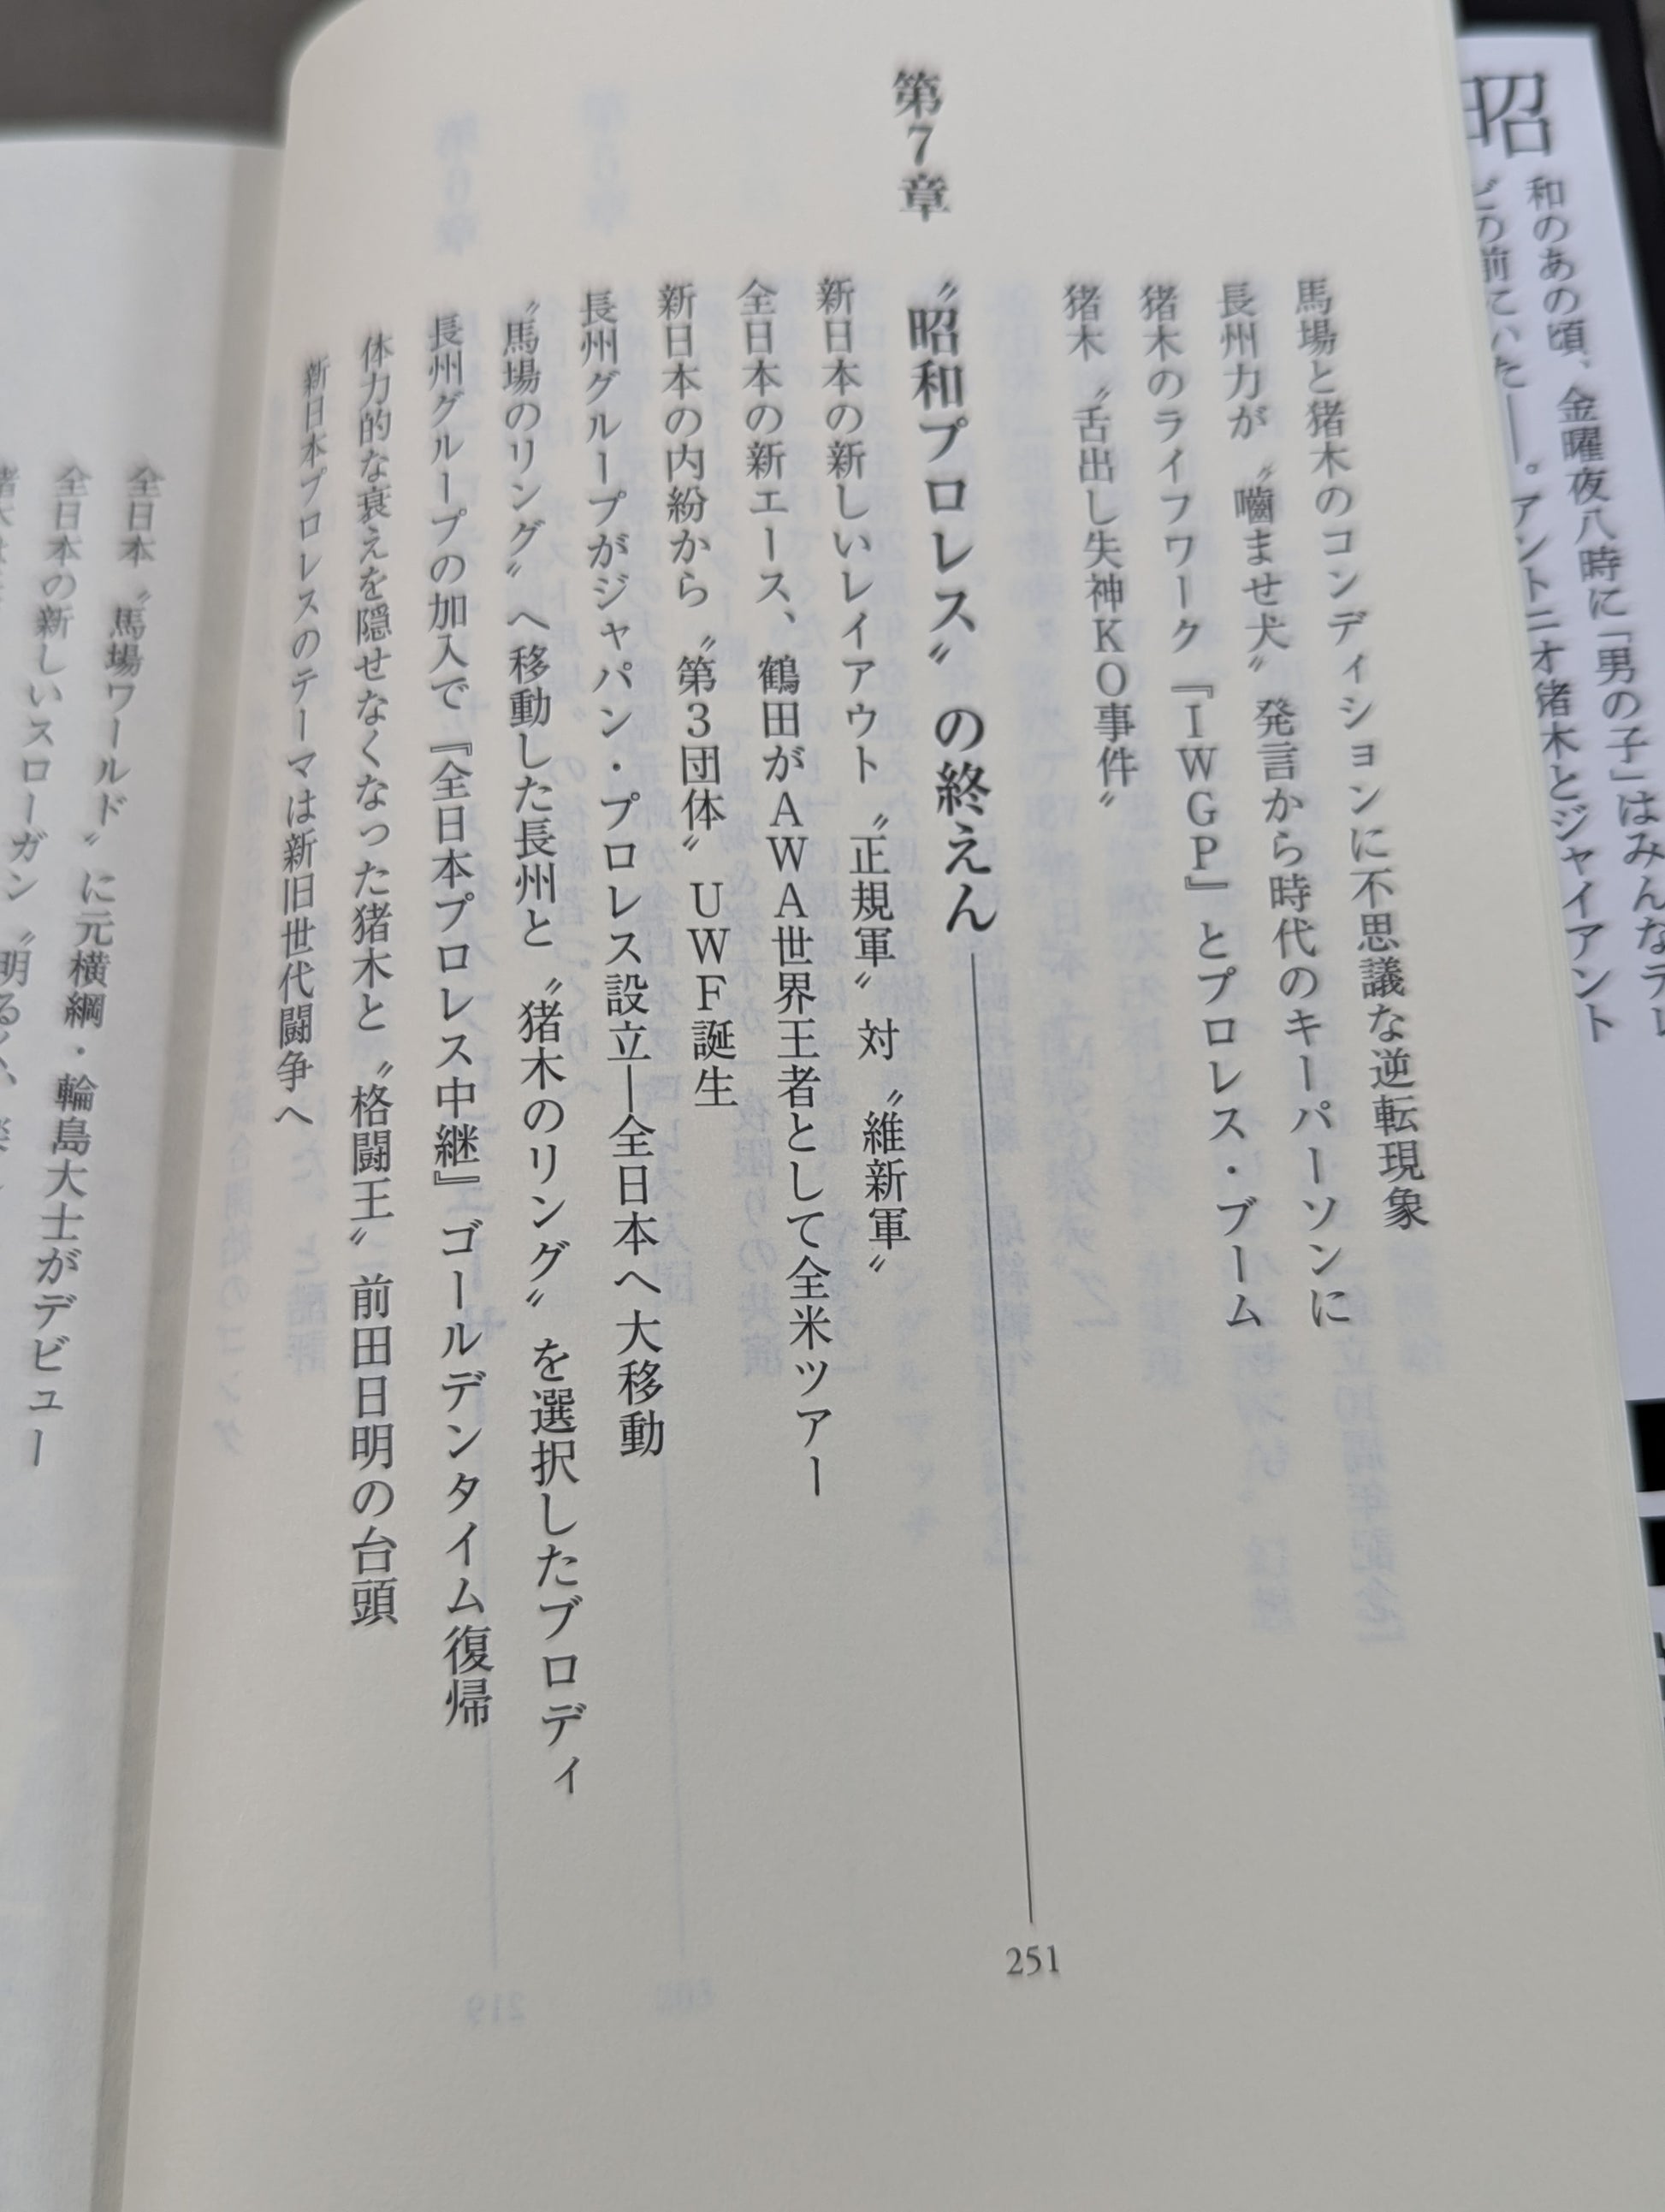 昭
和のあの頃、金曜夜八時に「男の子」はみんなテレ
ビの前にいた——。アントニオ猪木とジャイアント
馬場と猪木のコンディションに不思議な逆転現象
長州力が〝嚙ませ犬〟発言から時代のキーパーソンに
猪木のライフワーク『IWGP』とプロレス・ブーム
猪木〝舌出し失神KO事件〟
第7章
〝昭和プロレス〟の終えん
251
新日本の新しいレイアウト〝正規軍〟対〝維新軍〟
全日本の新エース、鶴田がAWA世界王者として全米ツアー
新日本の内紛から〝第3団体〟UWF誕生
長州グループがジャパン・プロレス設立—全日本へ大移動
〝馬場のリング〟へ移動した長州と〝猪木のリング〟を選択したブロディ
長州グループの加入で『全日本プロレス中継』ゴールデンタイム復帰
体力的な衰えを隠せなくなった猪木と〝格闘王〟前田日明の台頭
新日本プロレスのテーマは新旧世代闘争へ
全日本〝馬場ワールド〟に元横綱・輪島大士がデビュー
全日本の新しいスローガン〝明るく、